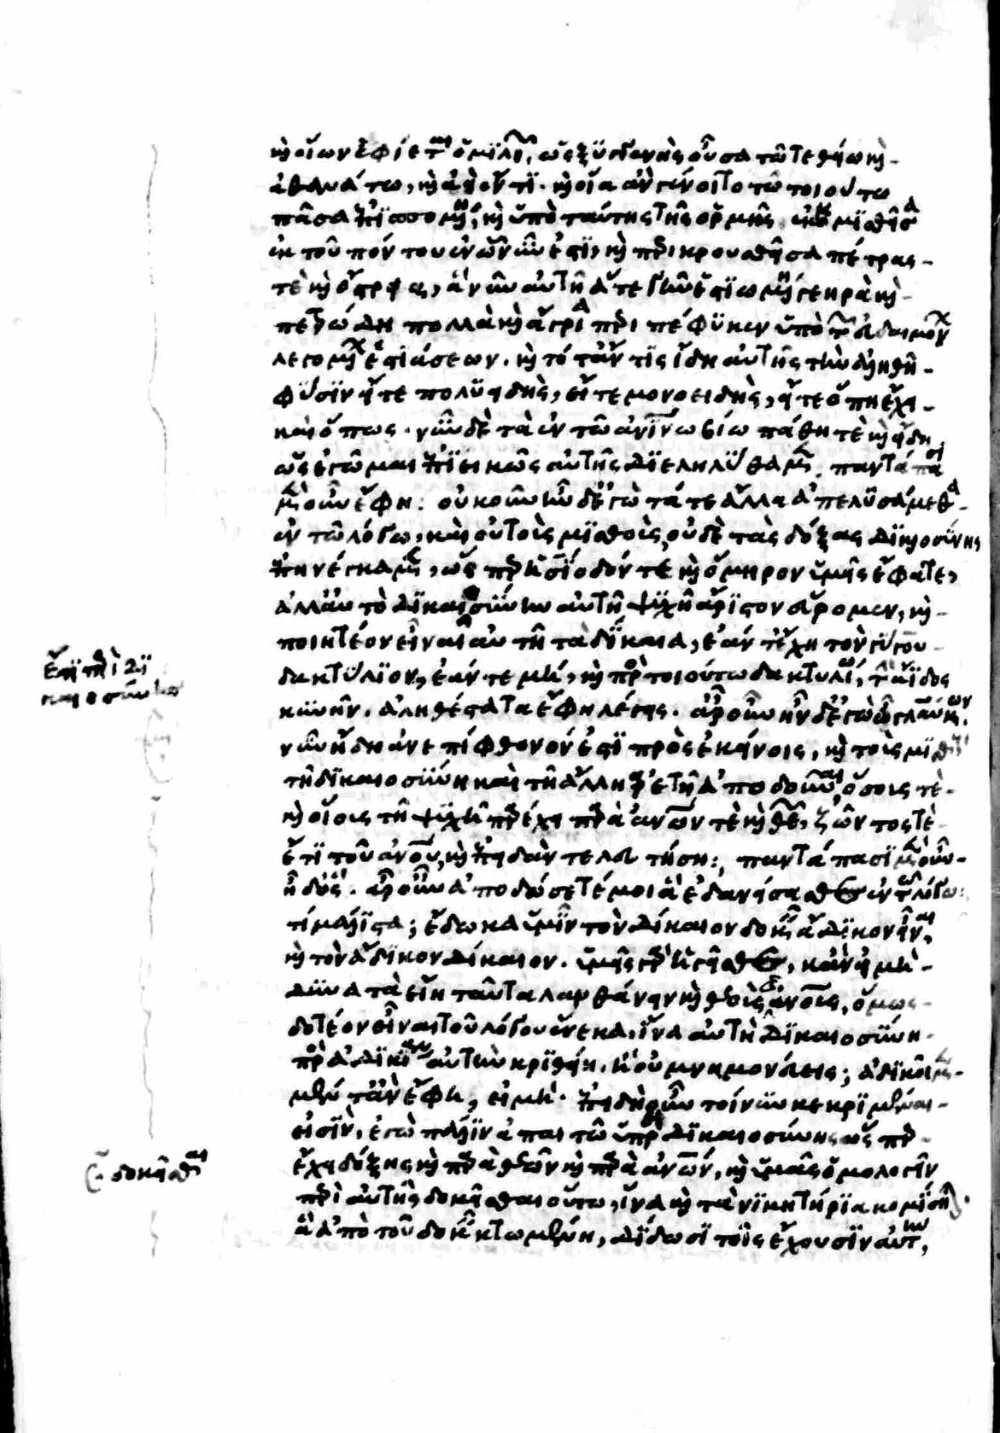 καὶ οἵων ἐφίεται ὁμιλιῶν, ὡς ξυγγενὴς οὖσα τῶ τε θείω καὶ
ἀθανάτω, καὶ ἀεὶ ὄντι. καὶ οἵα ἂν γένοιτο τῶ τοιούτω
πᾶσα ἐπισπομένη, καὶ ὑπὸ ταύτης τῆς ὁρμῆς ἐκκομισθεῖσα
ἐκ τοῦ πόντου ἐν ὧ νῦν ἐστὶ, καὶ περικρουσθεῖσα πέτρας
τὲ καὶ ὄστρεα, ἃ νῦν αὐτῆ ἅτε γῆν ἑστιωμένη γεηρὰ καὶ
πετρώδη πολλὰ καὶ ἄγρια περιπέφυκεν ὑπὸ τῶν εὐδαιμόνων
λεγομένων ἑστιάσεων. καὶ τότ' ἄν τις ἴδη αὐτῆς τὴν ἀληθῆ
φύσιν εἴτε πολυειδὴς, εἴτε μονοειδὴς, εἴτε ὅπη ἔχει
καὶ ὅπως. νῦν δὲ τὰ ἐν τῶ ἀνθρωπίνω βίω πάθη τὲ καὶ εἴδη
ὡς ἐγῶμαι ἐπιεικῶς αὐτῆς διεληλύθαμεν. παντάπασι
μὲν οὖν ἔφη: οὐκοῦν ἦν δ' ἐγὼ τά τε ἄλλα ἀπελυσάμεθα
ἐν τῶ λόγω, καὶ οὐ τοὺς μισθοὺς οὐδὲ τὰς δόξας δικαιοσύνης
ἐπηνέγκαμεν, ὡς περ ἡσίοδόν τε καὶ ὅμηρον ὑμεῖς ἔφατε,
ἀλλ' αὐτὸ δικαιοσύνην αὐτῆ ψυχῆ ἄριστον εὕρομεν, καὶ
ποιητέον εἶναι αὐτῆ τὰ δίκαια, ἐάν τ' ἔχη τὸν γύγου
δακτύλιον, ἐάν τε μὴ, καὶ πρὸς τοιούτω δακτυλίω, τὴν ἄϊδος
κυνῆν. ἀληθέστατα ἔφη λέγεις. ἆρ' οὖν ἦν δ' ἐγὼ ὦ γλαύκων,
νῦν ἤδη ἀνεπίφθονόν ἐστι πρὸς ἐκείνοις, καὶ τοὺς μισθοὺς
τῆ δικαιοσύνη καὶ τῆ ἄλλη ἀρετῆ ἀποδοῦναι, ὅσους τὲ
καὶ οἵους τῆ ψυχῆ παρέχει παρὰ ἀνθρώπων τὲ καὶ θεῶν, ζῶντος τὲ
ἔτι τοῦ ἀνθρώπου, καὶ ἐπειδὰν τελευτήση: παντάπασι μὲν οὖν
ἦ δ' ὅς. ἆρ' οὖν ἀποδώσετέ μοι ἃ ἐδανείσασθε ἐν τῶ λόγω:
τί μάλιστα; ἔδωκα ὑμῖν τὸν δίκαιον δοκεῖν ἄδικον εἶναι,
καὶ τὸν ἄδικον δίκαιον. ὑμεῖς γὰρ ἡγεῖσθε, κἂν εἰ μὴ
δυνατὰ εἴη ταῦτα λανθάνειν καὶ θεοὺς καὶ ἀνθρώπους, ὅμως
δοτέον εἶναι τοῦ λόγου ἕνεκα, ἵνα αὐτὴ δικαιοσύνη
πρὸς ἀδικίαν αὐτὴν κριθείη. ἢ οὐ μνημονεύεις; ἀδικοίην μέν
μέντ' ἂν ἔφη, εἰ μή. ἐπειδὴ οὖν τοίνυν κεκριμέναι
εἰσὶν, ἐγὼ πάλιν ἀπαιτῶ ὑπὲρ δικαιοσύνης ὥς περ
ἔχει δόξης καὶ παρὰ θεῶν καὶ παρὰ ἀνθρώπων, καὶ ὑμᾶς ὁμολογεῖν
περὶ αὐτῆς δοκεῖσθαι οὕτω, ἵνα καὶ τὰ νικητήρια κομίσηται
ἃ ἀπὸ τοῦ δοκεῖν κτωμένη, δίδωσι τοῖς ἔχουσιν αὐτὴν,
δοκεῖσθαι